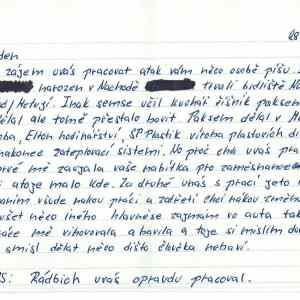 den
zájem uvás pracovat atak vám něco osobě píšu
narozen v Náchodě trvalí bidliště Ná
Inak semse učil kuchář číšník paksem
dělal ale tomě přestalo bavit. Paksem dělal v M
oba, Elton hodinářství, SP Plastik víroba plastovích d
nakonec zateplovací sistemi. No proč chá uvás pra
prvé mě zaujala vaše nabídka pro zaměstnance
i atoje malo kde. Za druhé uvás s prací jeto
aním všude nakou práci, a zadřetí chci nákou změn
ušet něco iného hlavněse zajmam vo auta tak
ráce mě vihovovala a bavila a toje si mislím du
smisl dělat něco dišto člověka nebaví.
S: Rádbich uvás opravdu pracoval.